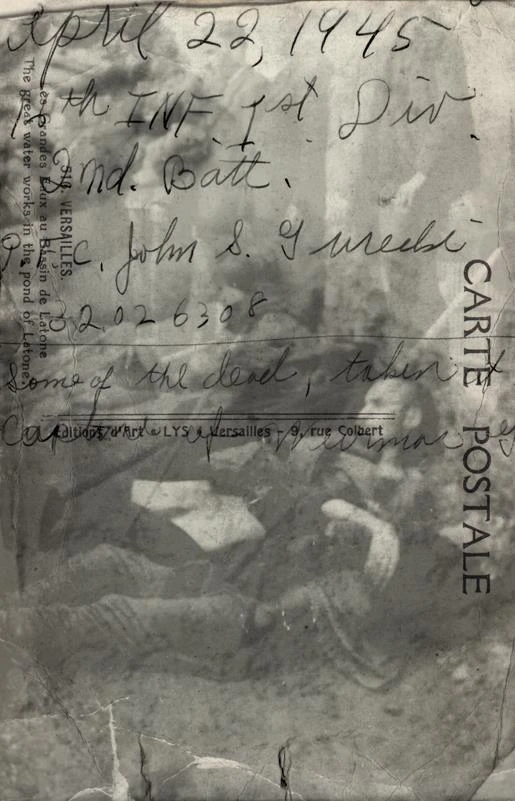 April 22, 1945
th INF. 1st Div.
2nd. Batt.
John S. Gurecki
32026308
Some of the dead, taken at
Camp
516. VERSAILLES.
Les Grandes Eaux au Bassin de Latone
The great water works in the pond of Latone.
Editions d'Art LYS Versailles - 9, rue Colbert
CARTE POSTALE